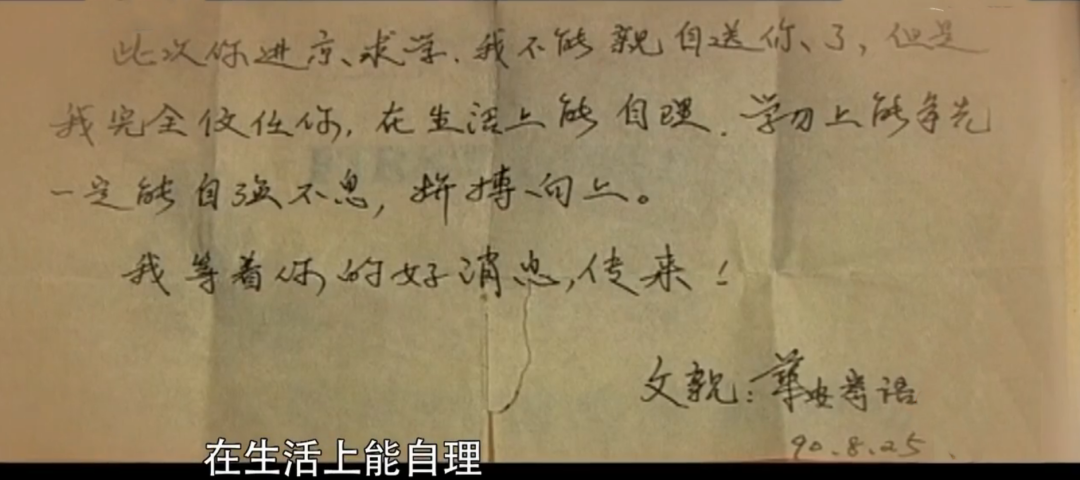 此次你进京求学.我不能亲自送你了,但是
我完全信任你,在生活上能自理.学习上能争先
一定能自强不息,拼搏向上。
我等着你的好消息,传来!
父亲:
90.8.25.
在生活上能自理